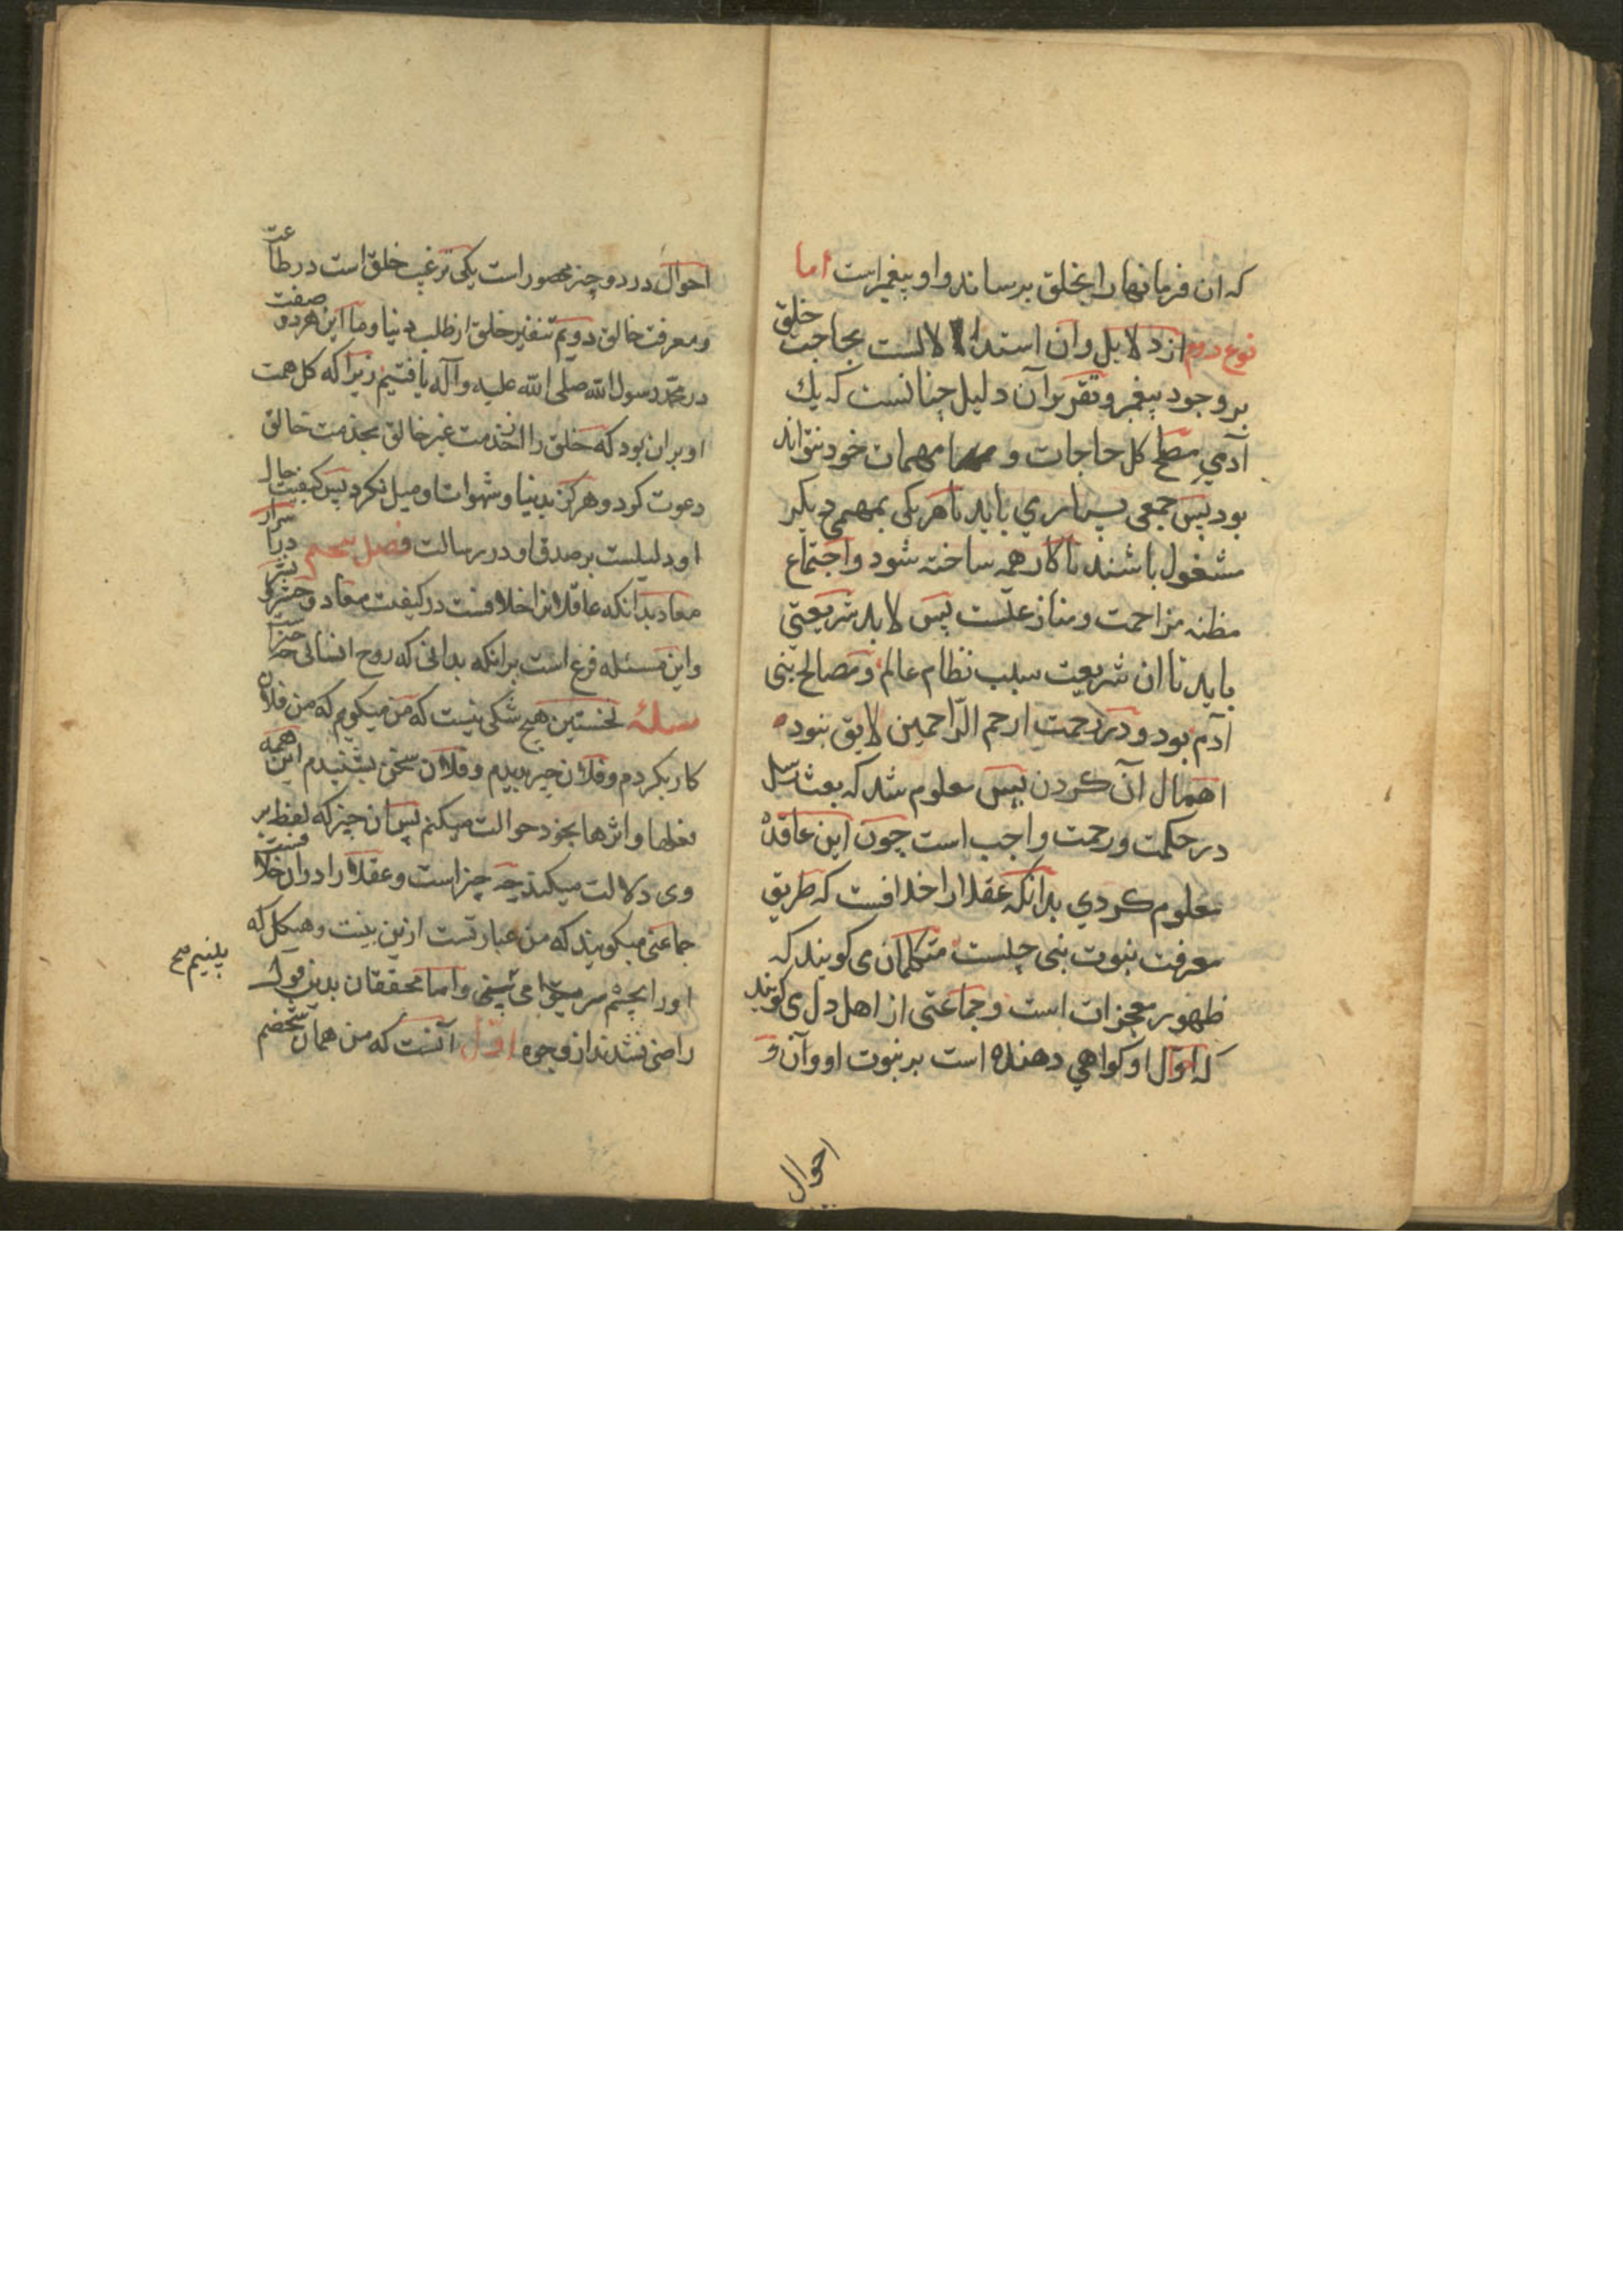 که ان فرمانها را بخلق برساند و او پیغمبراست اما
نوع دوم از دلایل وان استدلالست بحاجت خلق
بر وجود پیغمبر و تقریر آن دلیل چنانست که یك
آدمي مصلح کل حاجات و مهمات خود نتواند
بود پس جمعی بسیاري باید تا هر یکی بمهمي دیکر
مشغول باشند تا کار همه ساخته شود و اجتماع
مظنه مزاحمت و منازعتست پس لابد شریعتی
باید تا ان شریعت سبب نظام عالم و مصالح بنی
آدم بود و در رحمت ارحم الرّاحمین لایق نبوده
اهمال آن کردن پس معلوم شد که بعث رسل
در حکمت و رحمت واجب است چون این قاعده
معلوم کردي بدانکه عقلا را خلافست که طریق
معرفت نبوت نبی چیست متکلمان می کویند که
ظهور معجزات است و جماعتی از اهل دل می کویند
که احوال او کواهي دهنده است بر نبوت او و آن
احوال
احوال در دو چیز محصور است یکی ترغیب خلق است در طاعت
و معرفت خالق دویم تنفیر خلق از طلب دنیا و ما این هر دو صفت
در محمّد رسول الله صلی الله علیه و آله یافتیم زیرا که کل همت
او بران بود که خلق را از خدمت غیر خالق بخدمت خالق
دعوت کرد و هرکز بدنیا و شهوات او میل نکرد پس کیفیت حال
او دلیلست بر صدق او در رسالت فصل پنجم در اسرار
معاد بدانکه عاقلان را خلافست در کیفیت معاد و حشر
و این مسئله فرع است برانکه بدانی که روح انسانی چه چیز است
مسلهٔ نخستین هیچ شکی نیست که من میکویم که من فلان
کار بکردم و فلان چیز بدیدم و فلان سخن بشنیدم این همه
فعلها و اثرها بخود حوالت میکنم پس ان چیز که لفظ من بر
وی دلالت میکند چه چیز است و عقلا را دران خلافست
جماعتی میکویند که من عبارتست ازین بنیت و هیکل که
او را بچشم سر می بینیم و اما محققان بدین قول
راضی نشدند از وجوه اوّل آنست که من همان شخصم
ببینیم صح